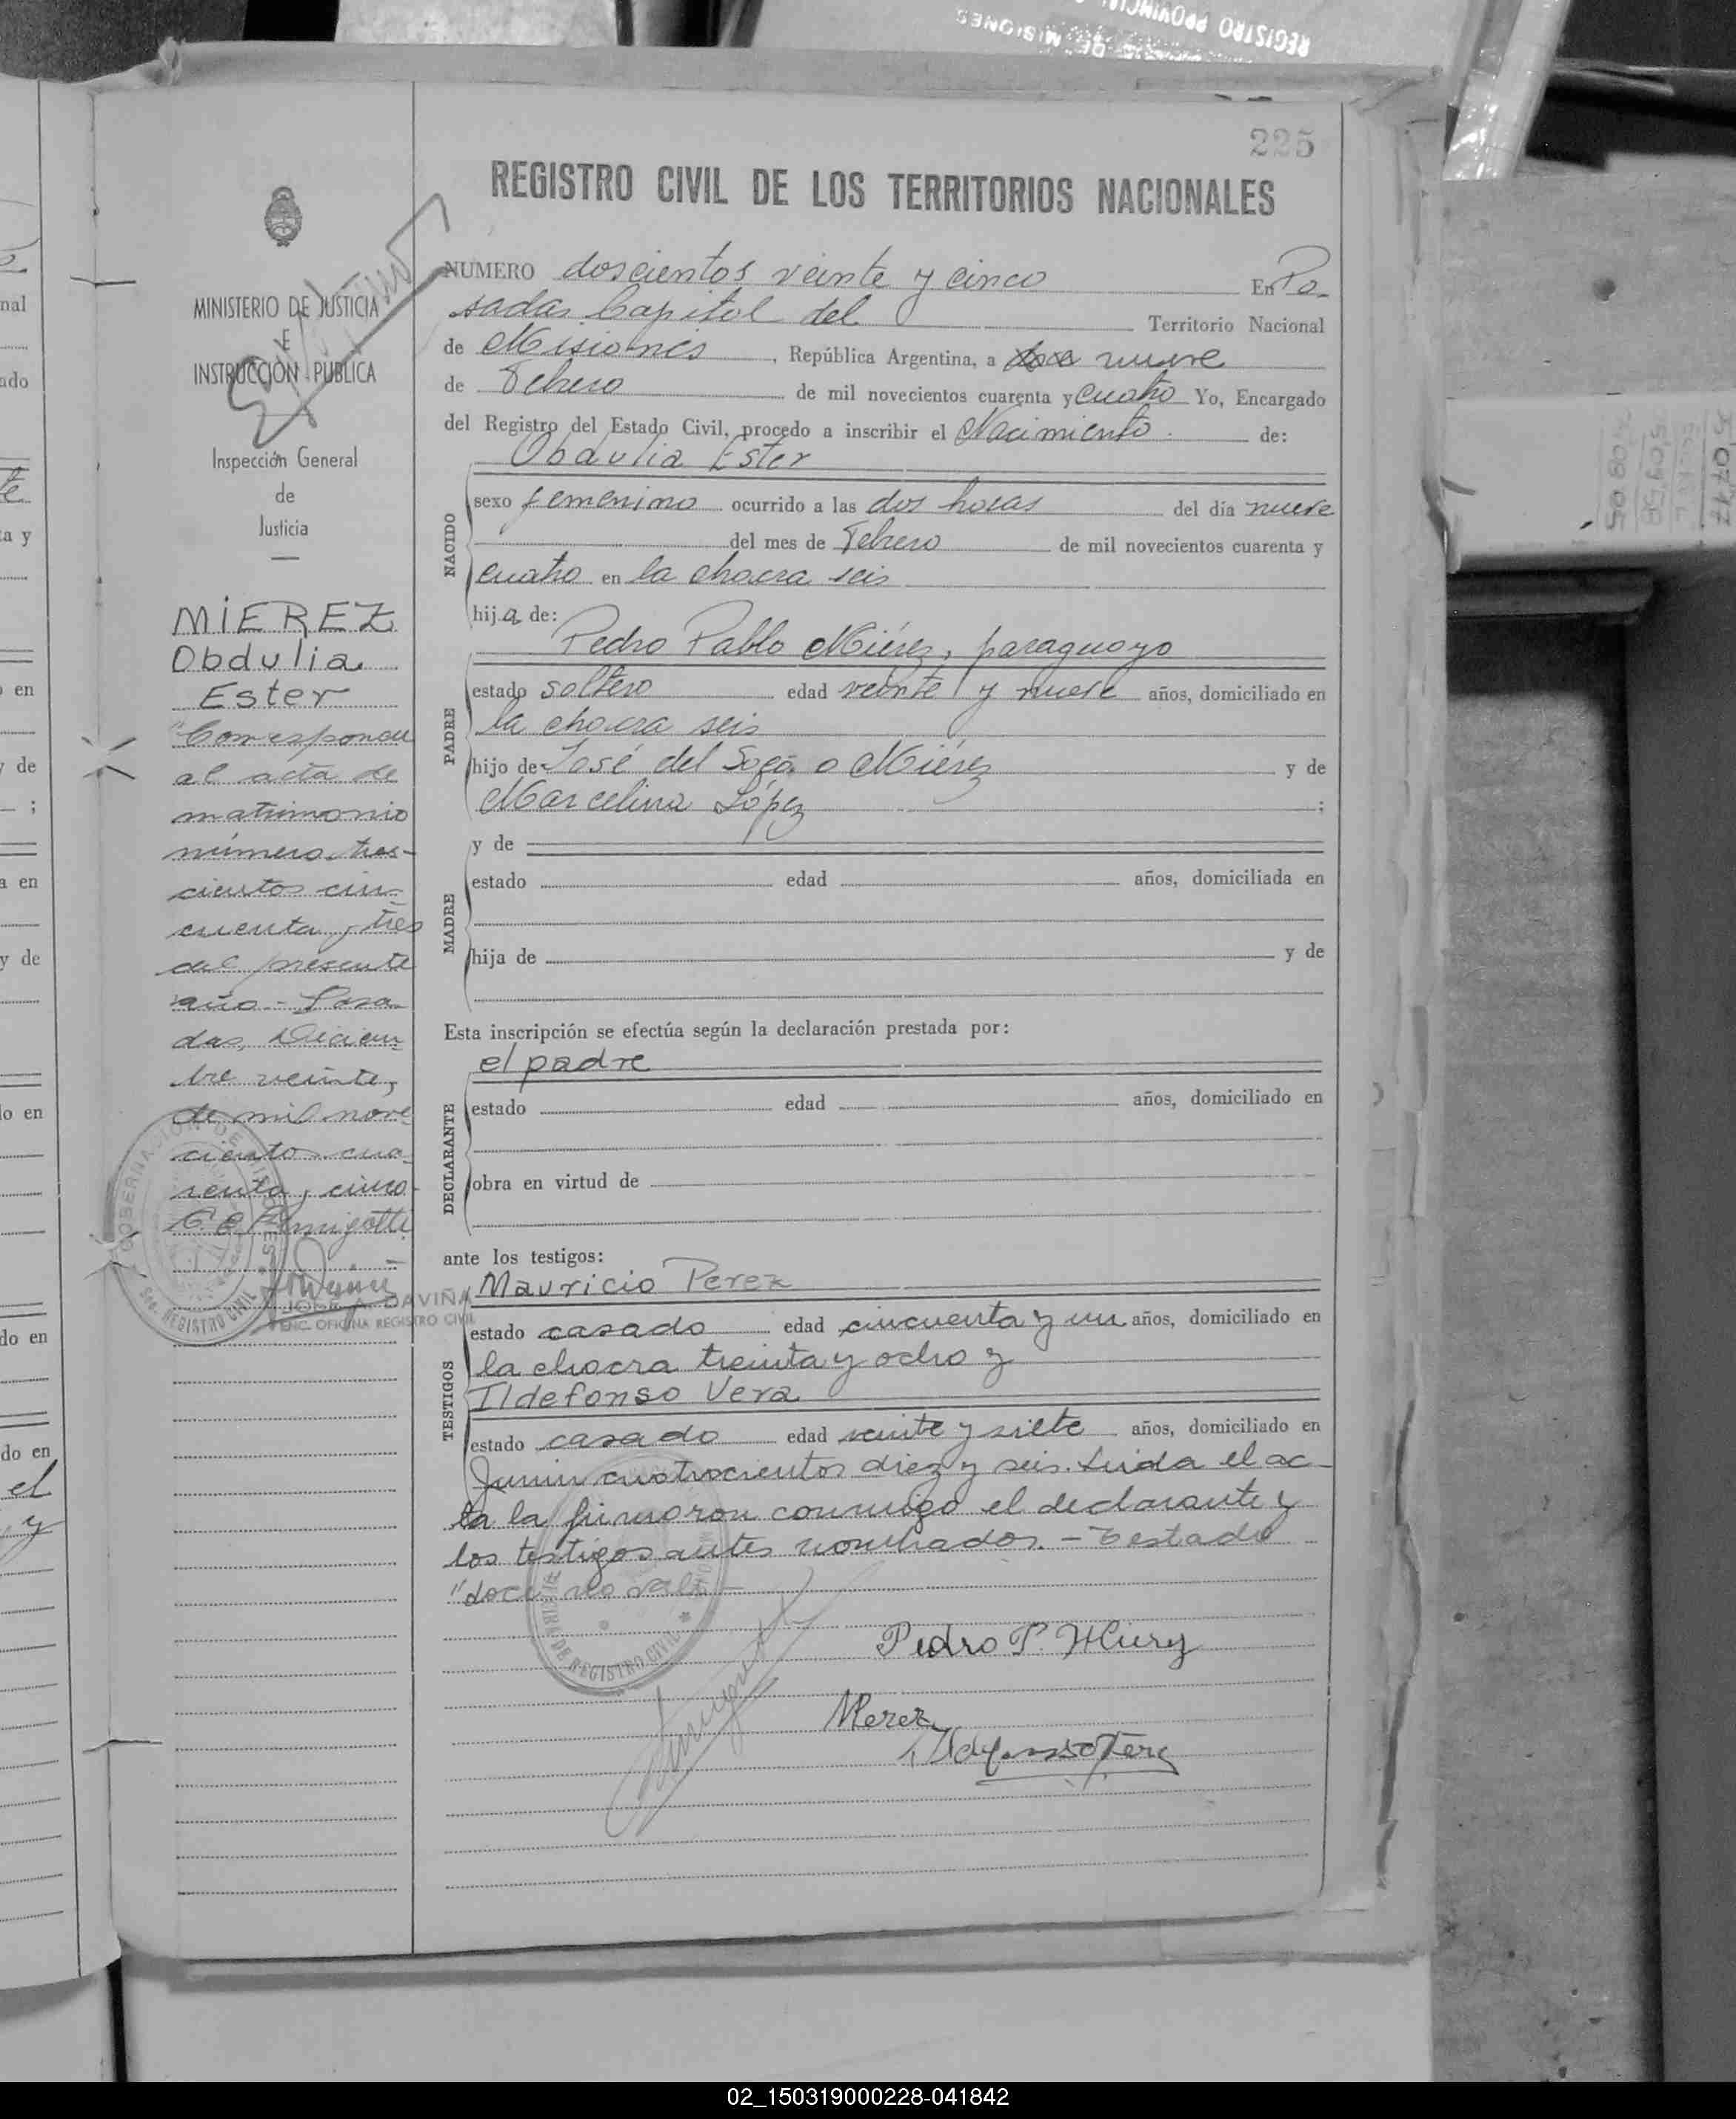 REGISTRO PROVINCIAL
DE MISIONES
225
REGISTRO CIVIL DE LOS TERRITORIOS NACIONALES
MINISTERIO DE JUSTICIA
E
INSTRUCCIÓN PÚBLICA
Inspección General
de
Justicia
MIEREZ
Obdulia
Ester
"Corresponde
al acta de
matrimonio
número tres-
cientos cin-
cuenta y tres
del presente
año - Posa-
das, Diciem-
bre veinte,
de mil nove-
cientos cua-
renta y cinco
JOSE A. DAVIÑA
ENC. OFICINA REGISTRO CIVIL
GOBERNACION DE MISIONES
REGISTRO CIVIL
NUMERO doscientos veinte y cinco En Po-
sadas Capital del Territorio Nacional
de Misiones, República Argentina, a doce nueve
de Febrero de mil novecientos cuarenta y cuatro Yo, Encargado
del Registro del Estado Civil, procedo a inscribir el Nacimiento de:
NACIDO
Obdulia Ester
sexo femenino ocurrido a las dos horas del día nueve
del mes de Febrero de mil novecientos cuarenta y
cuatro en la chacra seis
hija de:
PADRE
Pedro Pablo Miérez, paraguayo
estado soltero edad veinte y nueve años, domiciliado en
la chacra seis
hijo de José del Miérez y de
Marcelina López ;
MADRE
y de
estado edad años, domiciliada en
hija de y de
Esta inscripción se efectúa según la declaración prestada por:
DECLARANTE
el padre
estado edad años, domiciliado en
obra en virtud de
ante los testigos:
TESTIGOS
Mauricio Perez
estado casado edad cincuenta y un años, domiciliado en
la chacra treinta y ocho y
Ildefonso Vera
estado casado edad veinte y siete años, domiciliado en
Junin cuatrocientos diez y seis. Leida el ac-
ta la firmaron conmigo el declarante y
los testigos antes nombrados. - Testado
"doce" no vale -
OFICINA DE REGISTRO CIVIL
Pedro P. Mierez
MPerez
Ildefonso Vera
02_150319000228-041842